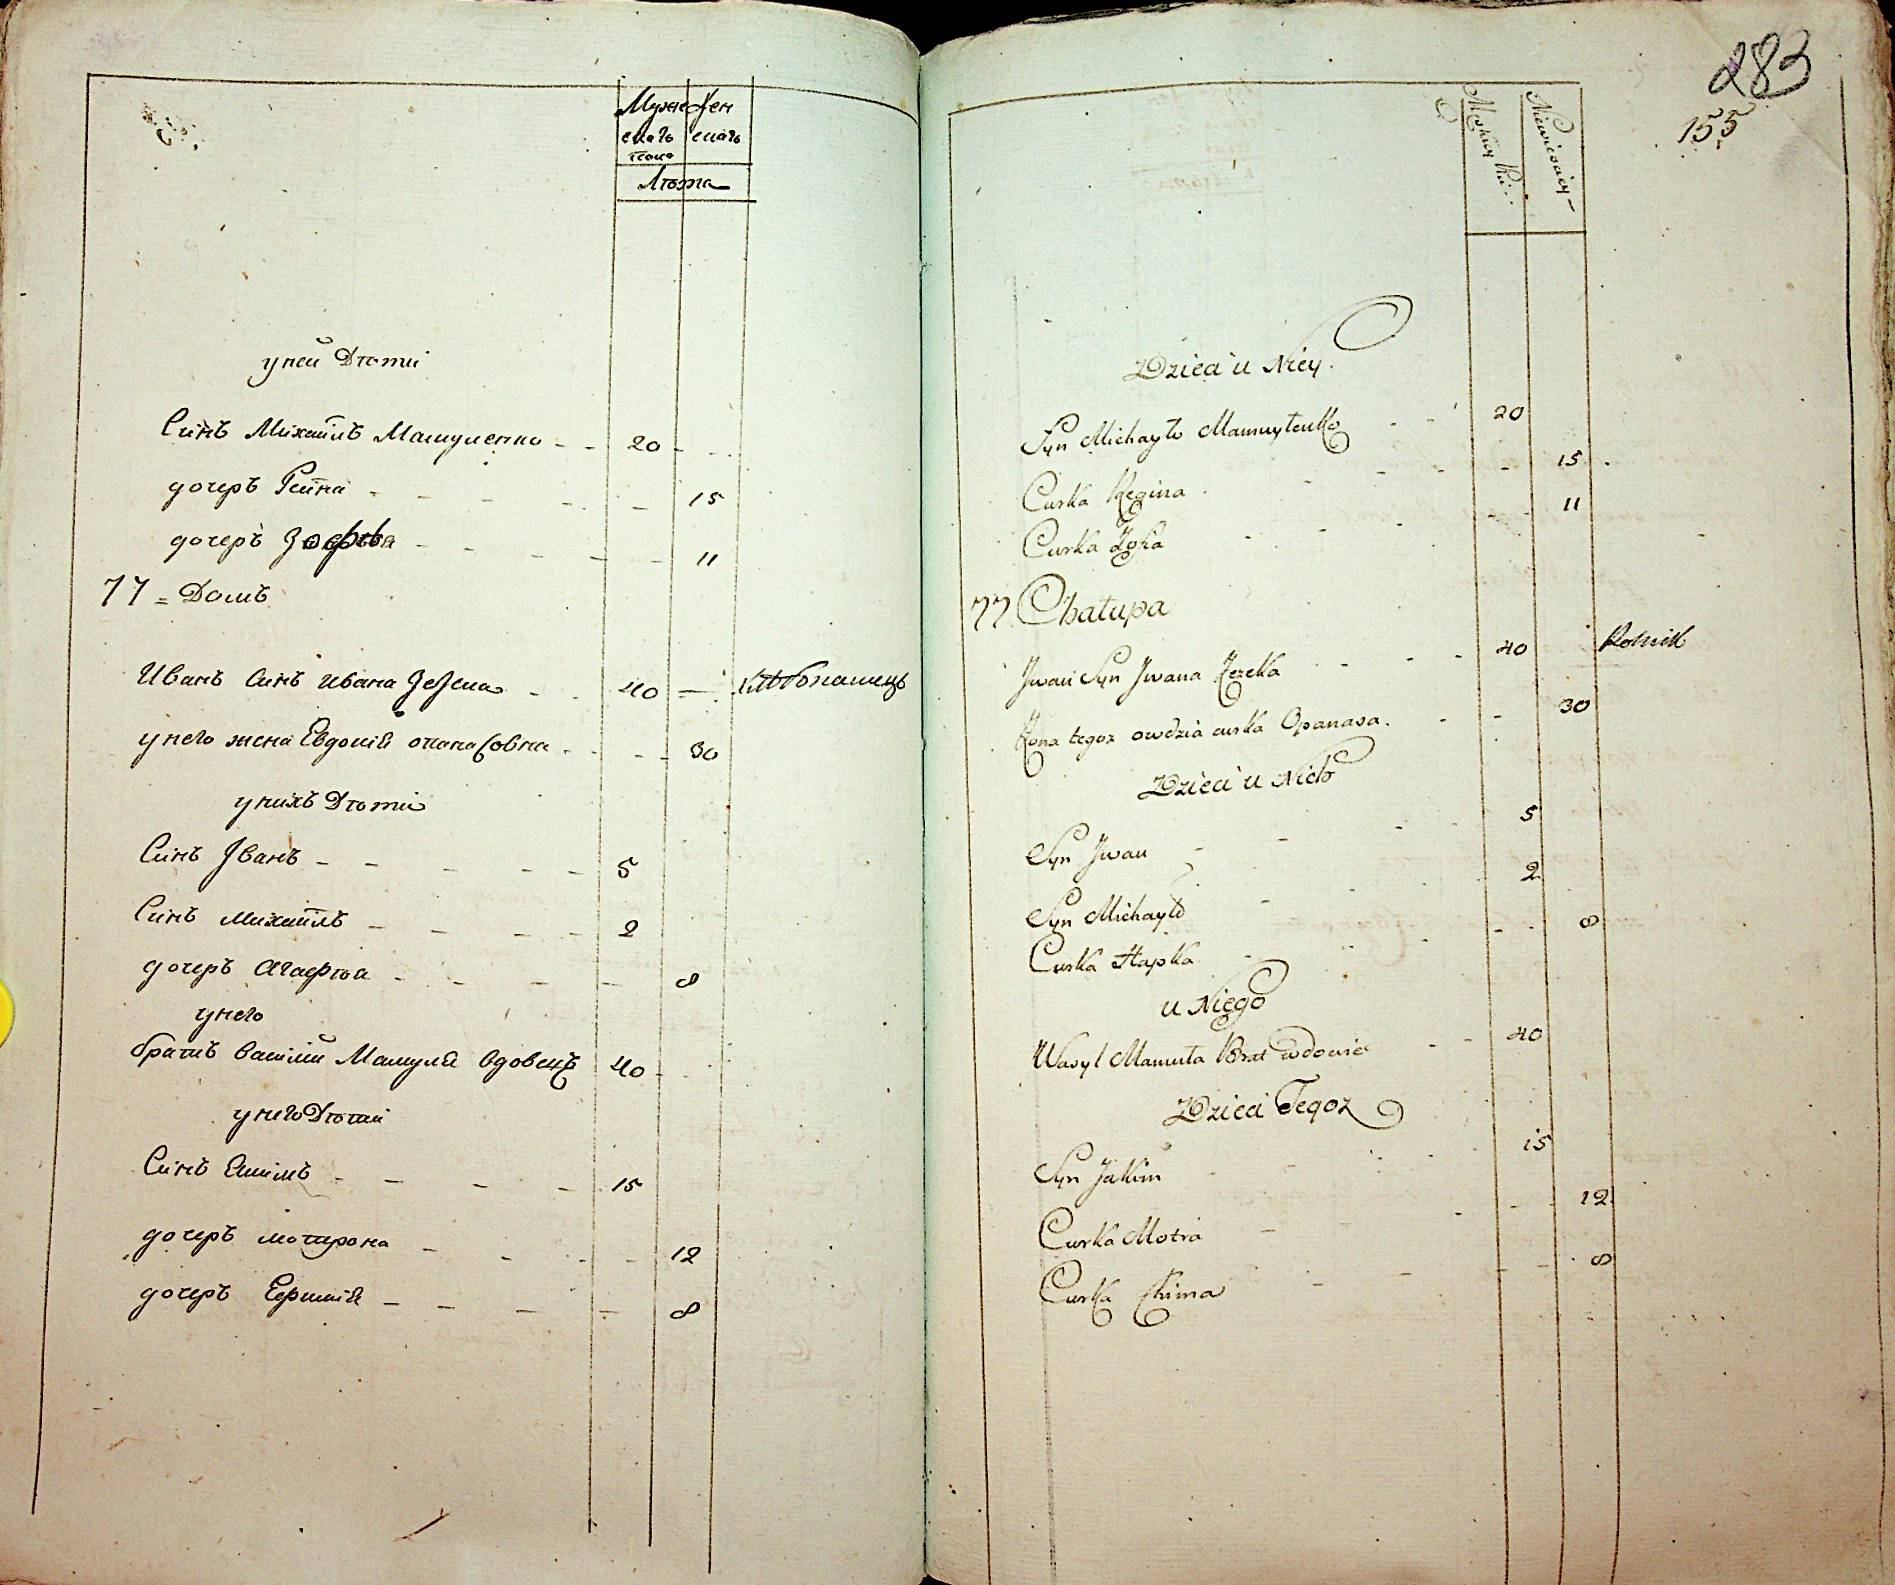 Муже Жен
скагъ скагъ
пола
Лѣта
у ней Дѣти
Синъ Михайлъ Мамуленко 20
дочеръ Реина 15
дочеръ Зофѣа 11
77 = Домъ
Иванъ Синъ Ивана Зезека 40 хлѣбопашецъ
у него жена Евдокія опанасовна 30
у нихъ Дѣти
Синъ Іванъ 5
Синъ Михайлъ 2
дочеръ Агафѣа 8
у него
братъ Василий Мамуля вдовецъ 40
у него Дѣти
Синъ Якимъ 15
дочеръ мотрона 12
дочеръ Ефимія 8
283
155
Niewieściey
Dzieci u Niey
Syn Michayło Mamuyłenko 20
Curka Regina 15
Curka Zofia 11
77 Chałupa
Jwan Syn Jwana Zezeka 40 Rolnik
Żona tegoż owdzia curka Opanasa 30
Dzieci u Nich
Syn Jwan 5
Syn Michayło 2
Curka Hapka 8
u Niego
Wasyl Mamuła Brat wdowiec 40
Dzieci Tegoż
Syn Jakim 15
Curka Motra 12
Curka Chima 8